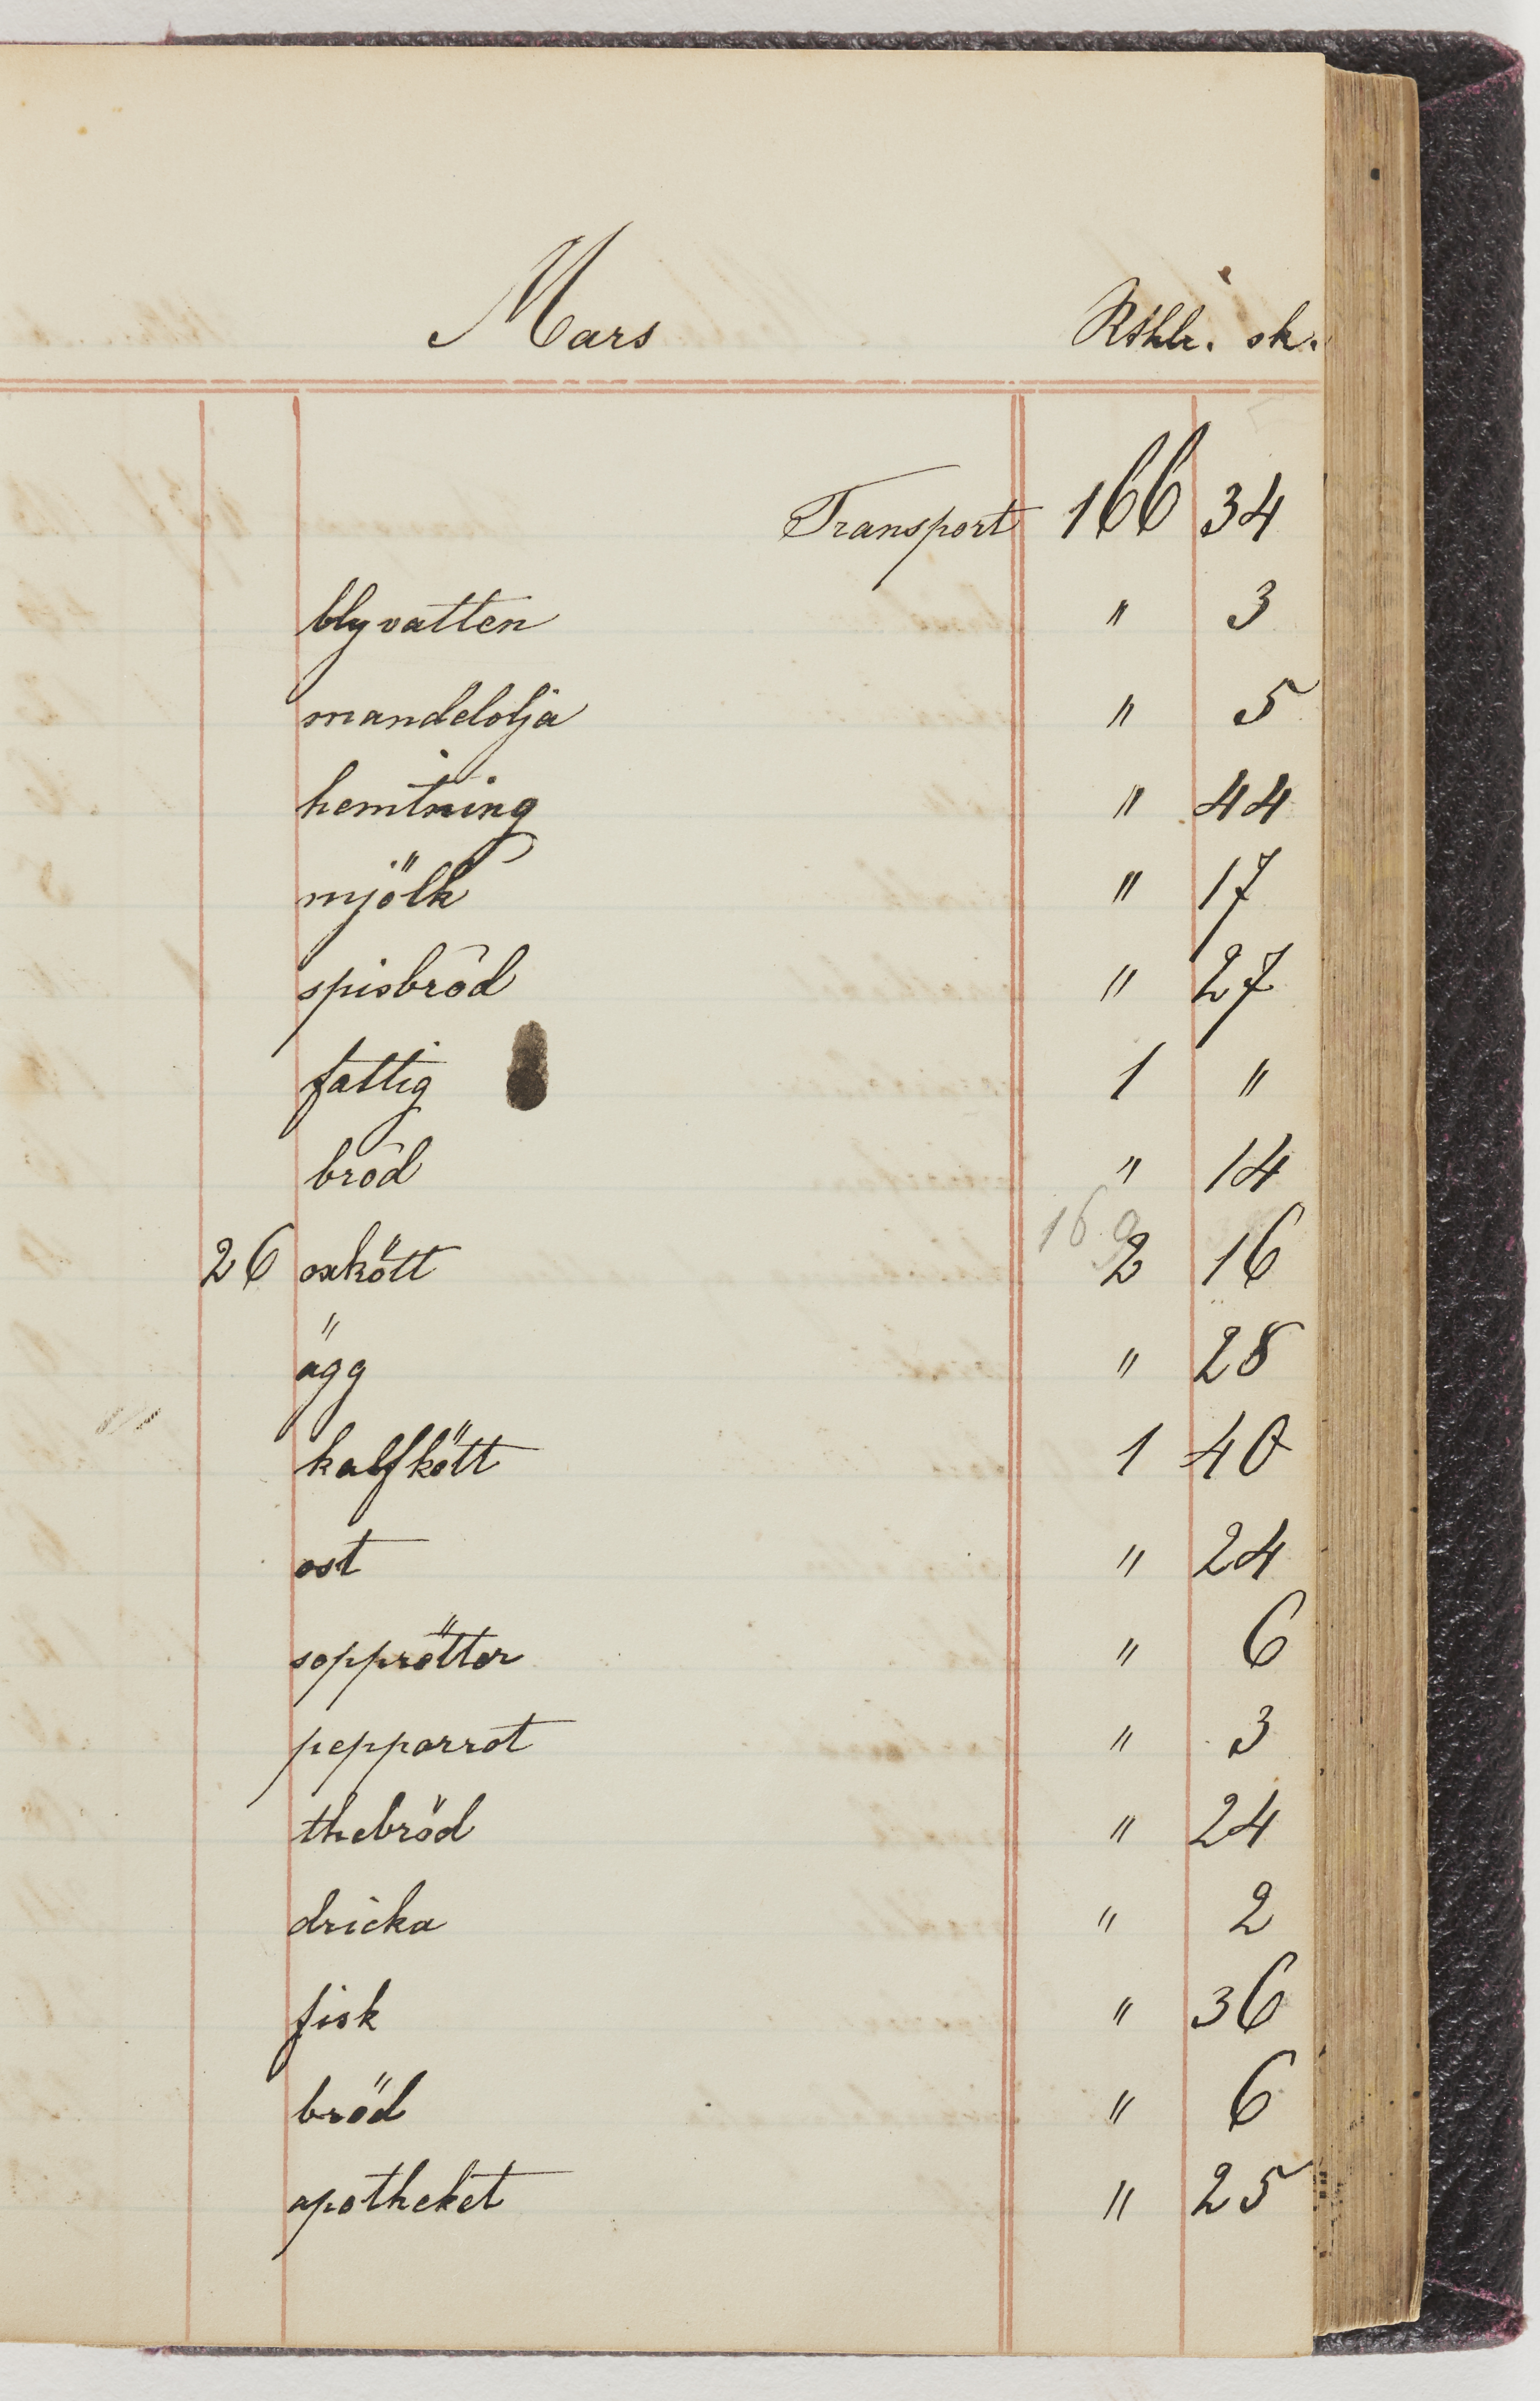 Mars Rthlr. sk.
Transport 166 34
blyvatten " 3
mandelolja " 5
hemtning " 44
mjölk " 17
spisbröd " 27
fattig 1 "
bröd " 14
169
26 oxkött 2 16
ägg " 28
kalfkött 1 40
ost " 24
sopprötter " 6
pepparrot " 3
thebröd " 24
dricka " 2
fisk " 36
bröd " 6
apotheket " 25